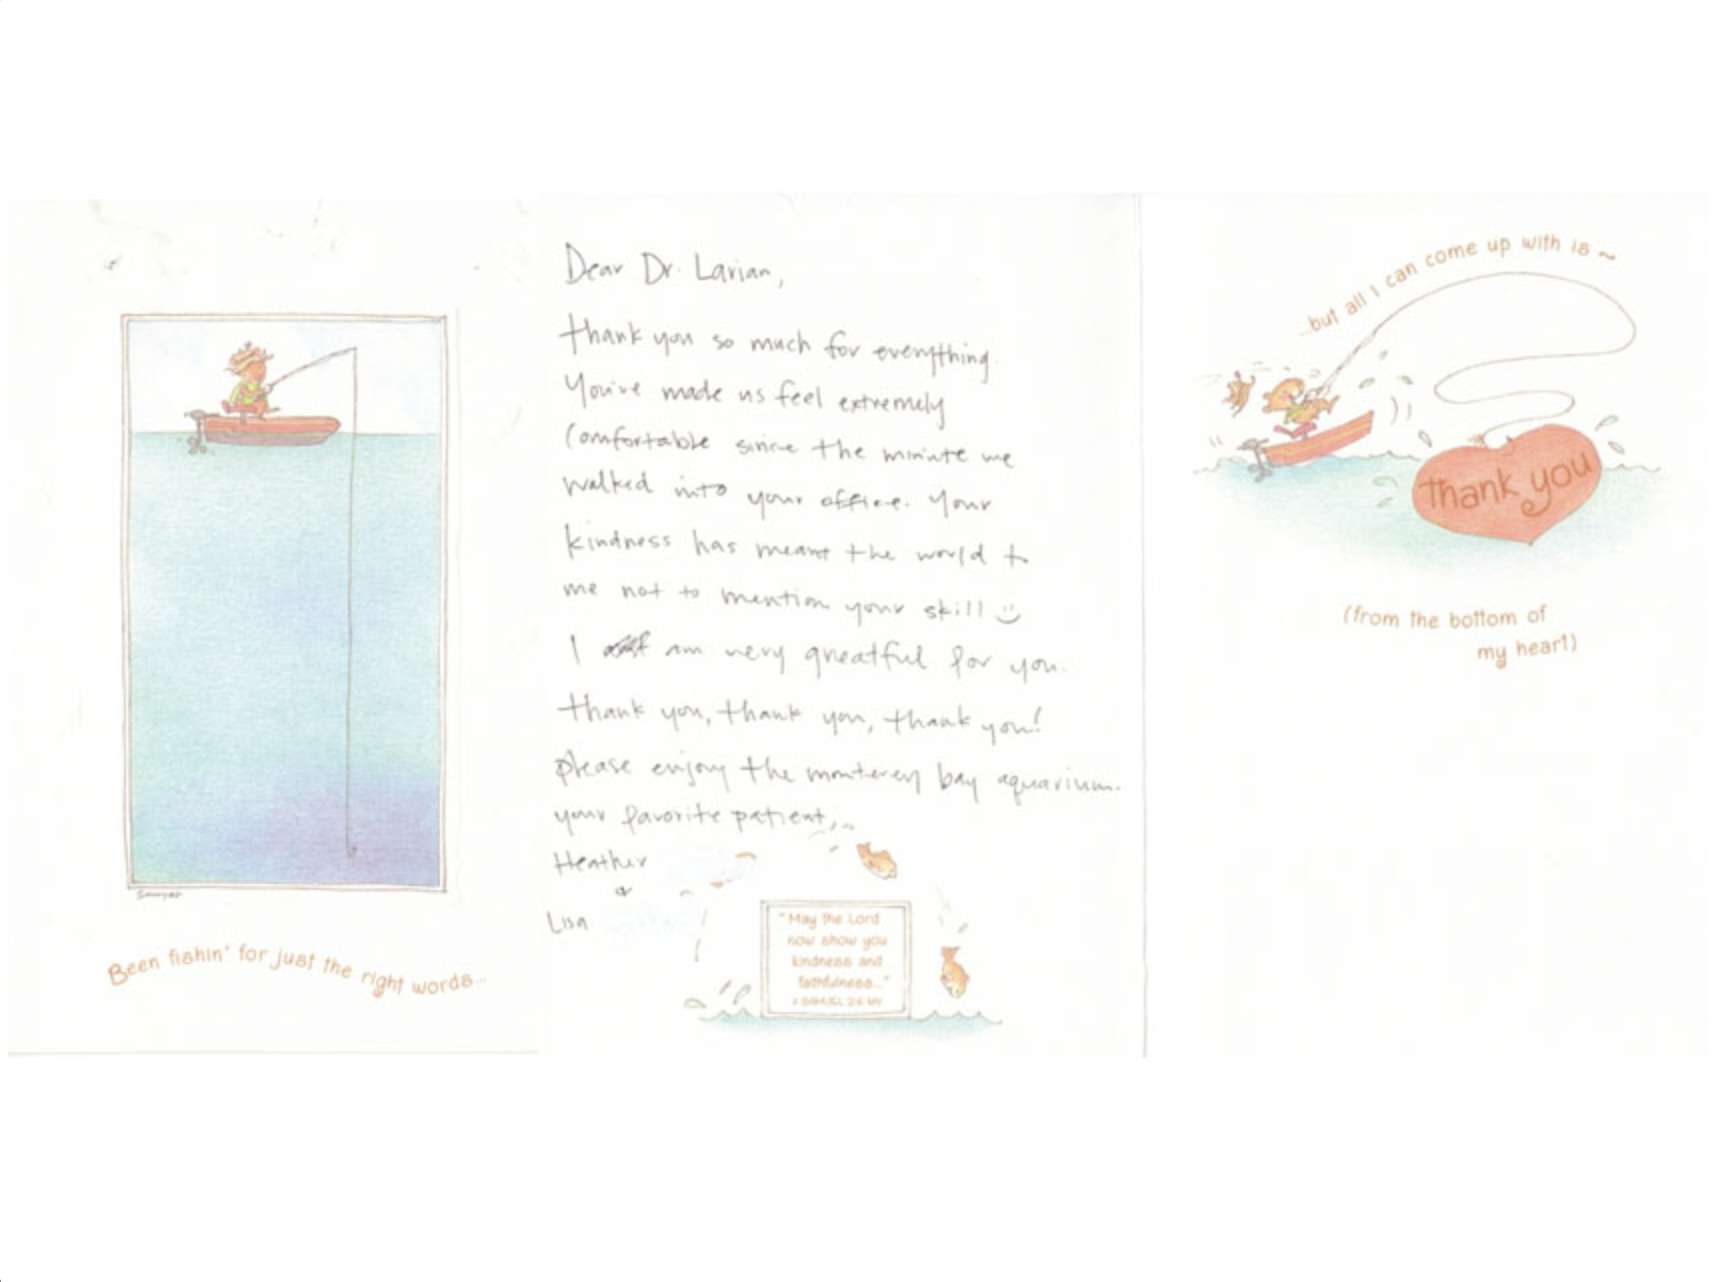 Been fishin' for just the right words...
Sawyer
Dear Dr. Larian,
thank you so much for everything.
You've made us feel extremely
comfortable since the minute we
walked into your office. Your
kindness has meant the world to
me not to mention your skill
I am very greatful for you.
thank you, thank you, thank you!
please enjoy the monterey bay aquarium.
your favorite patient,
Heather
&
Lisa
"May the Lord
now show you
kindness and
faithfulness..."
SAMUEL 2:6 NIV
...but all I can come up with is ~
thank you
(from the bottom of
my heart)